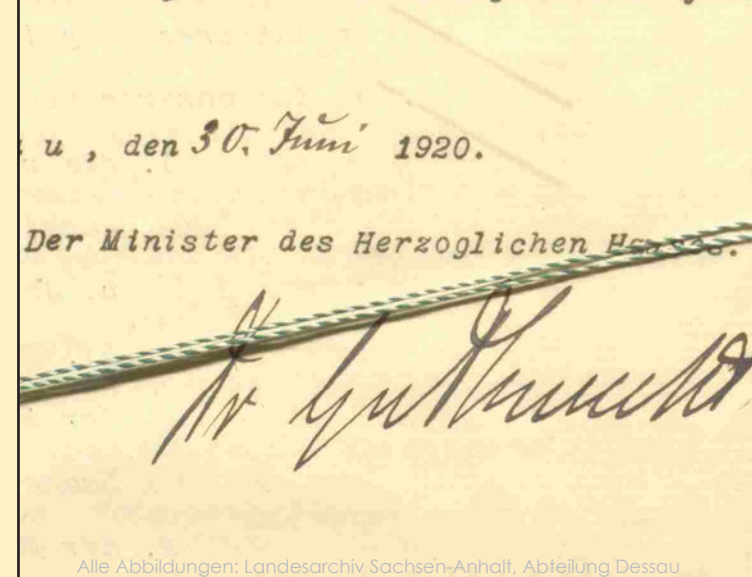 u, den 30. Juni 1920.
Der Minister des Herzoglichen Hauses.
Dr Gutknecht
Alle Abbildungen: Landesarchiv Sachsen-Anhalt, Abteilung Dessau